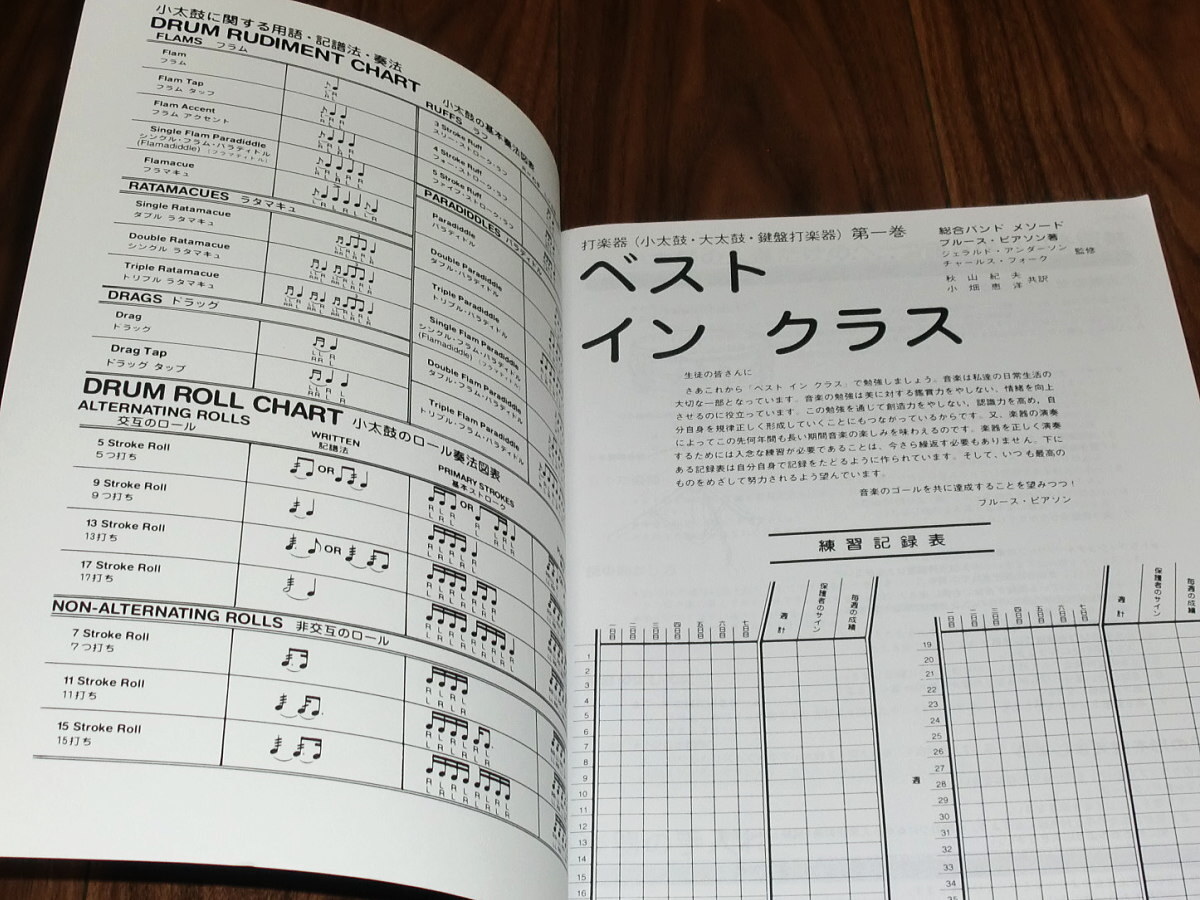 小太鼓に関する用語・記譜法・奏法
DRUM RUDIMENT CHART
小太鼓の基本奏法図表
FLAMS フラム
Flam
フラム
Flam Tap
フラム タップ
Flam Accent
フラム アクセント
Single Flam Paradiddle
シングル・フラム・パラディドル
(Flamadiddle)(フラマディドル)
Flamacue
フラマキュ
RATAMACUES ラタマキュ
Single Ratamacue
ダブル ラタマキュ
Double Ratamacue
シングル ラタマキュ
Triple Ratamacue
トリプル ラタマキュ
DRAGS ドラッグ
Drag
ドラッグ
Drag Tap
ドラッグ タップ
RUFFS ラフ
3 Stroke Ruff
スリー・ストローク・ラフ
4 Stroke Ruff
フォー・ストローク・ラフ
5 Stroke Ruff
ファイブ・ストローク・ラフ
PARADIDDLES パラディドル
Paradiddle
パラディドル
Double Paradiddle
ダブル・パラディドル
Triple Paradiddle
トリプル・パラディドル
Single Flam Paradiddle
シングル・フラム・パラディドル
(Flamadiddle)(フラマディドル)
Double Flam Paradiddle
ダブル・フラム・パラディドル
Triple Flam Paradiddle
トリプル・フラム・パラディドル
DRUM ROLL CHART 小太鼓のロール奏法図表
ALTERNATING ROLLS
交互のロール
WRITTEN
記譜法
PRIMARY STROKES
基本ストローク
5 Stroke Roll
5つ打ち
OR
OR
9 Stroke Roll
9つ打ち
13 Stroke Roll
13打ち
OR
17 Stroke Roll
17打ち
NON-ALTERNATING ROLLS 非交互のロール
7 Stroke Roll
7つ打ち
11 Stroke Roll
11打ち
15 Stroke Roll
15打ち
打楽器（小太鼓・大太鼓・鍵盤打楽器）第一巻
総合バンド メソード
ブルース・ピアソン著
ジェラルド・アンダーソン
チャールス・フォーク
監修
秋山紀夫
小畑恵洋
共訳
ベスト
イン クラス
生徒の皆さんに
さあこれから「ベスト イン クラス」で勉強しましょう。音楽は私達の日常生活の
大切な一部となっています。音楽の勉強は美に対する鑑賞力をやしない、情緒を向上
させるのに役立っています。この勉強を通じて創造力をやしない、認識力を高め，自
分自身を規律正しく形成していくことにもつながっているからです。又、楽器の演奏
によってこの先何年間も長い期間音楽の楽しみを味わえるのです。楽器を正しく演奏
するためには入念な練習が必要であることは、今さら繰返す必要もありません。下に
ある記録表は自分自身で記録をたどるように作られています。そして、いつも最高の
ものをめざして努力されるよう望んでいます。
音楽のゴールを共に達成することを望みつつ！
ブルース・ピアソン
練習記録表
一日目 二日目 三日目 四日目 五日目 六日目 七日目 週計 保護者のサイン 毎週の成績
1
2
3
4
5
6
7
8
9
10
11
12
13
14
15
16
一日目 二日目 三日目 四日目 五日目 六日目 七日目 週計 保護者のサイン 毎週の成績
週
19
20
21
22
23
24
25
26
27
28
29
30
31
32
33
34
35